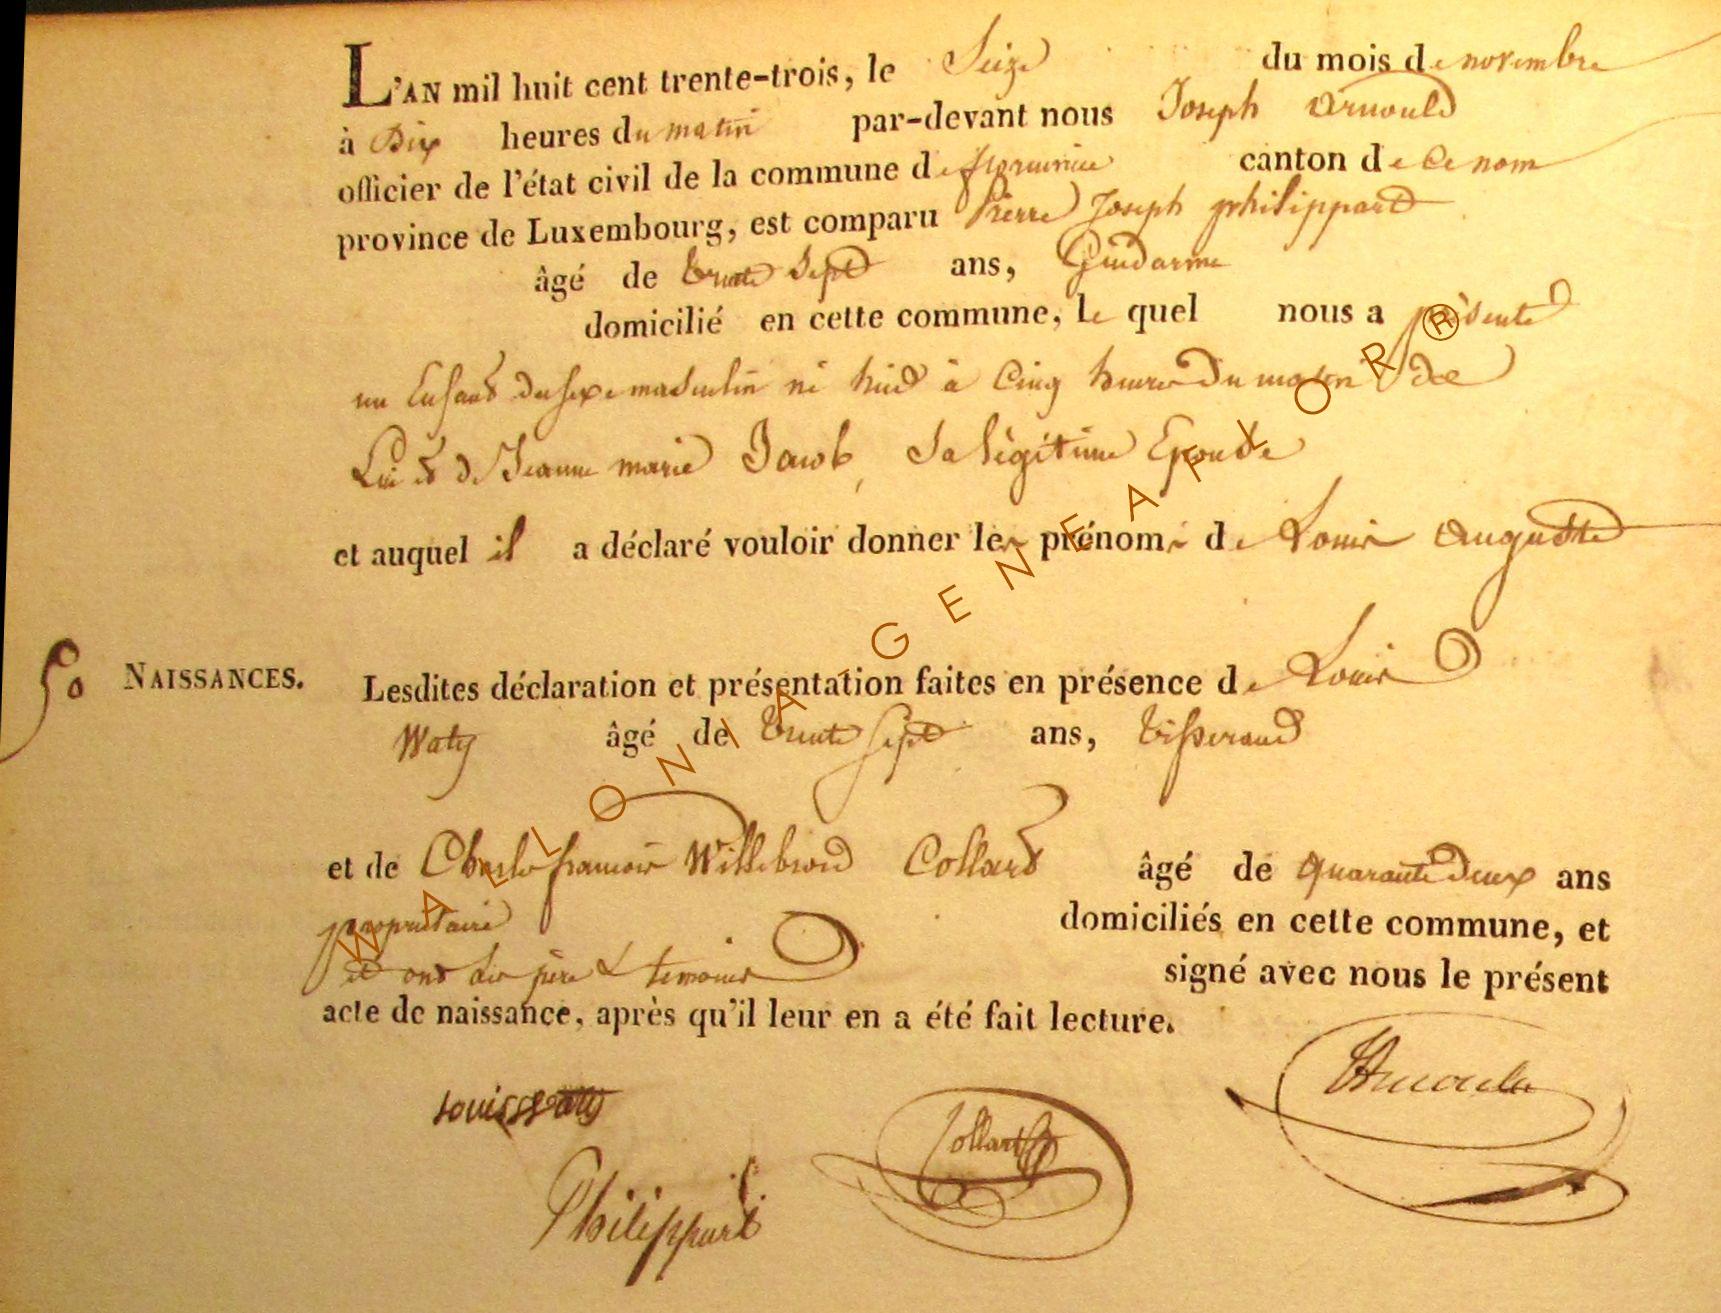 L'AN mil huit cent trente-trois, le Seize du mois de novembre
à Dix heures du matin par-devant nous Joseph Arnould
officier de l'état civil de la commune de canton de ce nom
province de Luxembourg, est comparu Pierre Joseph philippart
âgé de trente Sept ans, Gendarme
domicilié en cette commune, le quel nous a présenté
un Enfant du sexe masculin né hier à Cinq heures du matin de
Lui et de Jeanne marie Jacob, Sa légitime Epouse
et auquel il a déclaré vouloir donner les prénoms de Louis Auguste
50 NAISSANCES. Lesdites déclaration et présentation faites en présence de Louis
Waty âgé de trente sept ans, tisserand
et de Charles francois Willebrord Collard âgé de quarante deux ans
propriétaire domiciliés en cette commune, et
et ont les père & temoins signé avec nous le présent
acte de naissance, après qu'il leur en a été fait lecture.
Louis Waty
Collard
JArnould
Philippart
WALLONIA-GENEAFLOR®